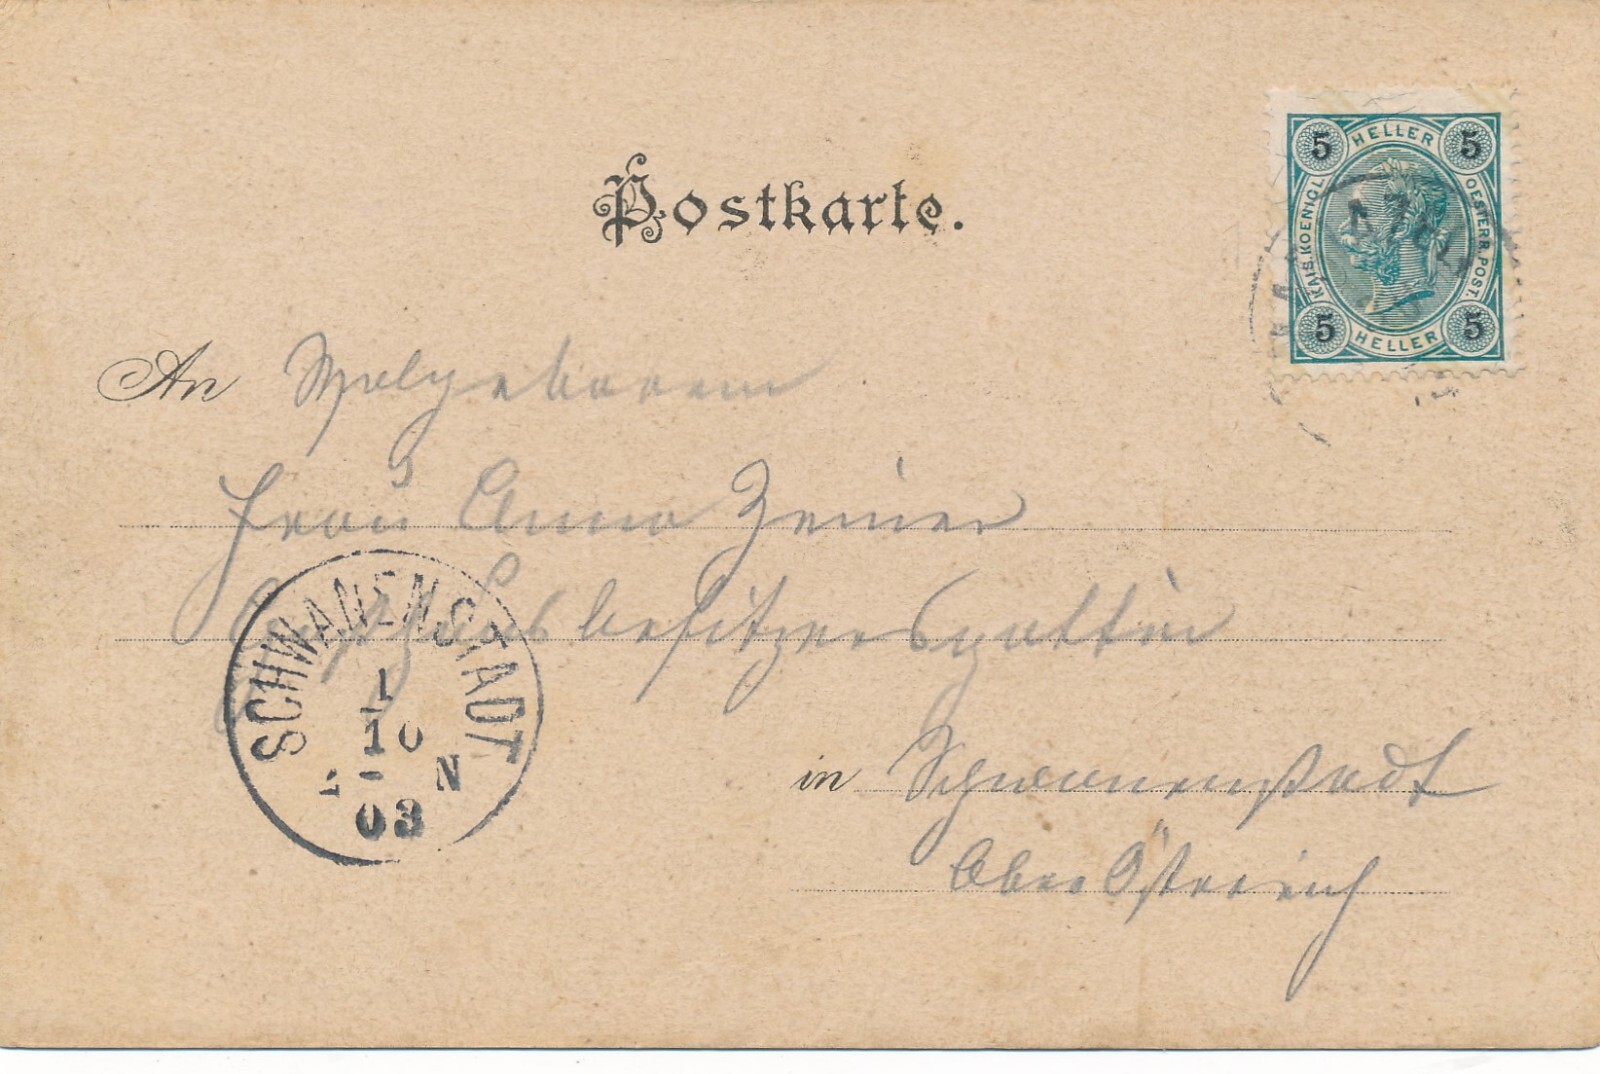 Postkarte.
5 HELLER 5
KAIS. KOENIGL. OESTERR. POST.
5 HELLER 5
An Wolgeborenen
Frau Anna Zeiner
besitzersgattin
SCHWANENSTADT
1
10
N
03
in Schwanenstadt
Ober Östreich